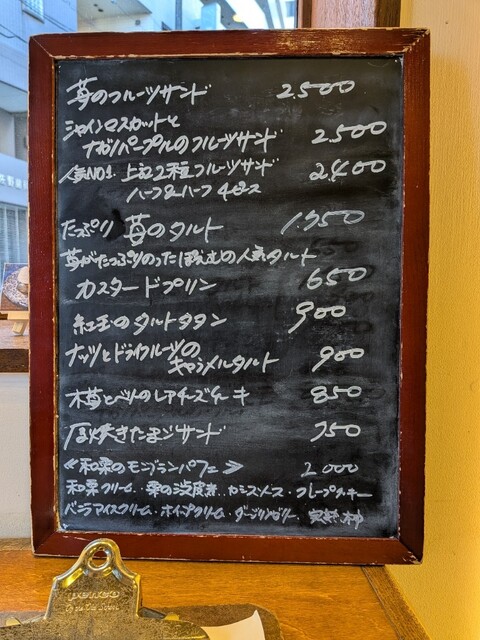 苺のフルーツサンド 2.500
シャインマスカットと
ナガノパープルのフルーツサンド 2.500
人気NO1. 上記2種フルーツサンド 2.400
ハーフ&ハーフ 4ピース
たっぷり 苺のタルト 1.350
苺がたっぷりのったほほえむの人気タルト
カスタードプリン 650
紅玉のタルトタタン 900
ナッツとドライフルーツの
キャラメルタルト 900
木苺とベリーのレアチーズケーキ 850
厚焼きたまごサンド 750
≪和栗のモンブランパフェ≫ 2.000
和栗クリーム・栗の渋皮煮・カシスソース・クレープクッキー
バニラアイスクリーム・ホイップクリーム・ダージリンゼリー